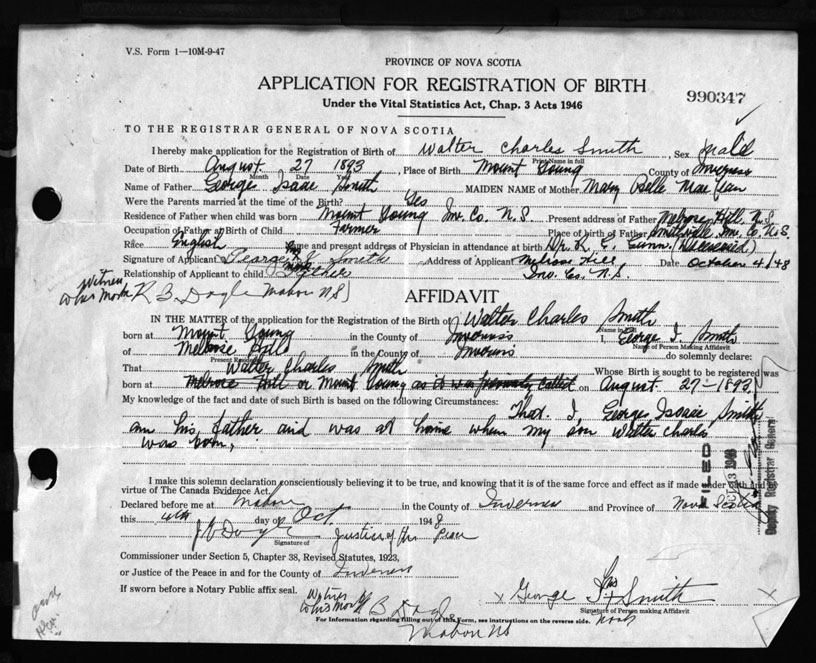 V.S. Form 1—10M-9-47
PROVINCE OF NOVA SCOTIA
APPLICATION FOR REGISTRATION OF BIRTH
990347
Under the Vital Statistics Act, Chap. 3 Acts 1946
TO THE REGISTRAR GENERAL OF NOVA SCOTIA
I hereby make application for the Registration of Birth of Walter Charles Smith, Sex Male
Print Name in full
Date of Birth August 27 1893, Place of Birth Mount Young County of Inverness
Month Date Year
Name of Father George Isaac Smith MAIDEN NAME of Mother Mary Belle
Were the Parents married at the time of the Birth? Yes
Residence of Father when child was born Mount Young Inv. Co. N.S. Present address of Father Melrose Hill, N.S.
Occupation of Father of Birth of Child Farmer Place of birth of Father Smithville Inv. Co. N.S.
Race English Name and present address of Physician in attendance at birth Dr. K. E. Gunn. (Deceased)
Signature of Applicant George I Smith Address of Applicant Melrose Hill Date October 4/48
his mark
Relationship of Applicant to child Father Inv. Co. N.S.
Witness to his mark B Doyle Mabou NS
AFFIDAVIT
IN THE MATTER of the application for the Registration of the Birth of Walter Charles Smith
Name in full
born at Mount Young in the County of Inverness I, George I. Smith
Name of Person Making Affidavit
of Melrose Hill in the County of Inverness do solemnly declare:
Present Residence
That Walter Charles Smith Whose Birth is sought to be registered was
born at Melrose Hill or Mount Young as it was formerly called on August 27-1893
My knowledge of the fact and date of such Birth is based on the following Circumstances:
That I, George Isaac Smith
am his father and was at home when my son Walter Charles
was born,
FILED
OCT 13 1948
Deputy Registrar General
I make this solemn declaration conscientiously believing it to be true, and knowing that it is of the same force and effect as if made under oath and by
virtue of The Canada Evidence Act.
Declared before me at Mabou in the County of Inverness and Province of Nova Scotia
this 4th day of Oct. 1948
Doyle Justice of the Peace
Signature of
Commissioner under Section 5, Chapter 38, Revised Statutes, 1923,
or Justice of the Peace in and for the County of Inverness
If sworn before a Notary Public affix seal.
Witness to his mark B Doyle
Mabou NS
x George I his + Smith
mark
Signature of Person making Affidavit
For Information regarding filling out of this Form, see instructions on the reverse side.